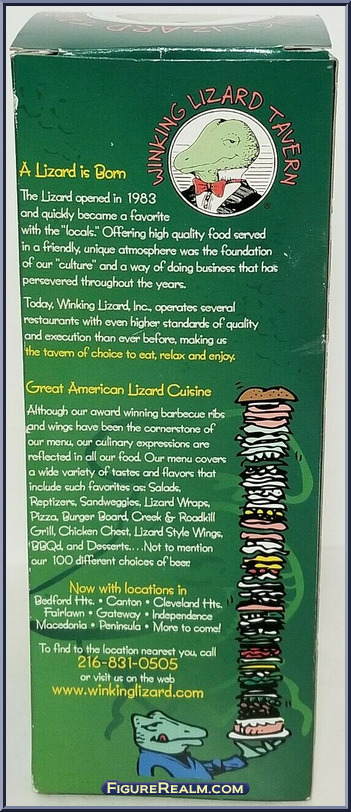 WINKING LIZARD TAVERN
A Lizard is Born
The Lizard opened in 1983
and quickly became a favorite
with the "locals." Offering high quality food served
in a friendly, unique atmosphere was the foundation
of our "culture" and a way of doing business that has
persevered throughout the years.
Today, Winking Lizard, Inc., operates several
restaurants with even higher standards of quality
and execution than ever before, making us
the tavern of choice to eat, relax and enjoy.
Great American Lizard Cuisine
Although our award winning barbecue ribs
and wings have been the cornerstone of
our menu, our culinary expressions are
reflected in all our food. Our menu covers
a wide variety of tastes and flavors that
include such favorites as: Salads,
Reptizers, Sandweggies, Lizard Wraps,
Pizza, Burger Board, Creek & Roadkill
Grill, Chicken Chest, Lizard Style Wings,
BBQd, and Desserts....Not to mention
our 100 different choices of beer.
Now with locations in
Bedford Hts. • Canton • Cleveland Hts.
Fairlawn • Gateway • Independence
Macedonia • Peninsula • More to come!
To find to the location nearest you, call
216-831-0505
or visit us on the web
www.winkinglizard.com
FIGUREREALM.COM